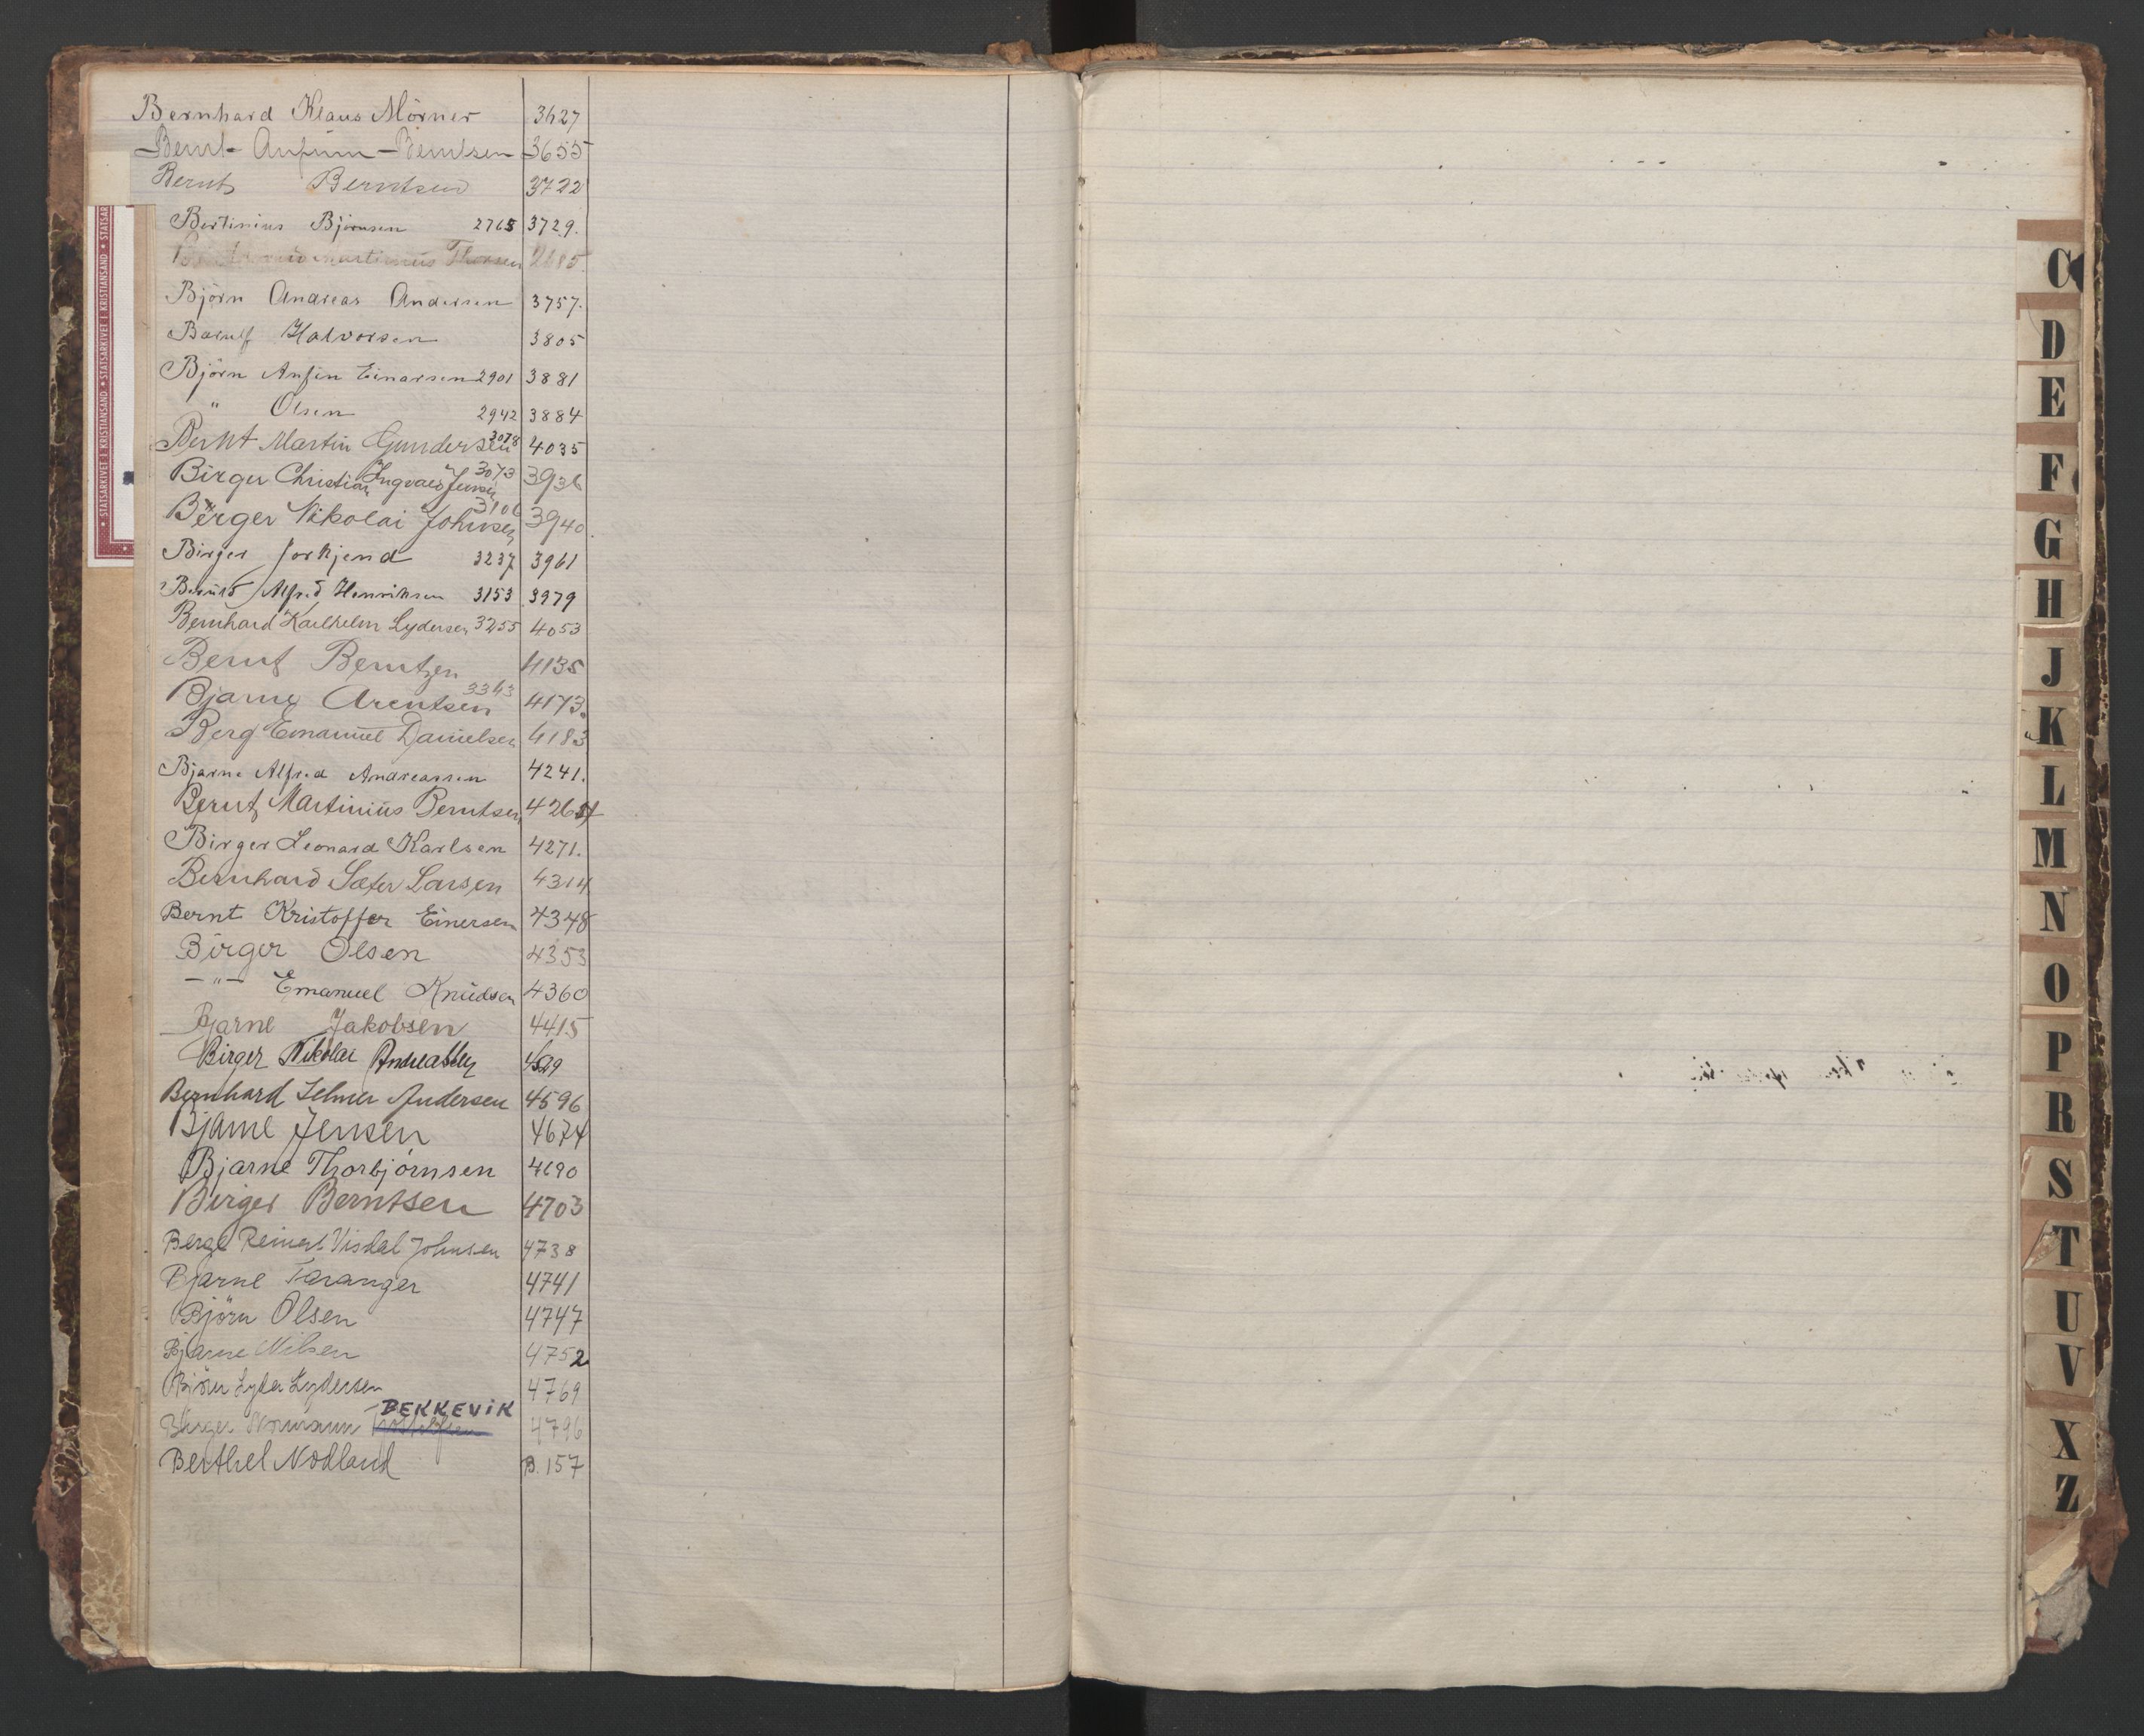 Bernhard Klaus Mörner 3627
Bernt Anfinn Berntsen 3655
Bernt Berntsen 3722
Bertinius Björnsen 2765 3729.
Martinius Thorsen 2685.
Björn Andreas Andersen 3757.
Halvorsen 3805
Björn Anfin Einarsen 2901 3881
" Olsen 2942 3884
Bernt Martin Gundersen 3078 4035
Birger Christian Ingvald Jensen 3073 3936
Birger Nikolai Johnsen 3106 3940.
Birger Jorkjend 3237 3961
Alfred Henriksen 3153 3979
Bernhard Karlhelm Lydersen 3255 4053
Bernt Berntzen 4135
Bjarne Arentsen 3343 4173.
Berg Emanuel Danielsen 4183
Bjarne Alfred Andreassen 4241.
Bernt Martinius Berntsen 4264
Birger Leonard Karlsen 4271.
Bernhard Sæter Larsen 4314
Bernt Kristoffer Einersen 4348
Birger Olsen 4353
—"— Emanuel Knudsen 4360
Bjarne Jakobsen 4415
Birger Nikolai Andreassen
Bernhard Selmer Andersen 4596
Bjarne Jensen 4674
Bjarne Thorbjörnsen 4690
Birger Berntsen 4703
Berge Reinert Visdal Johnsen 4738
Bjarne Taranger 4741
Björn Olsen 4747
Bjarne Nilsen 4752
Björn Lyder Lydersen 4769
BEKKEVIK
Birger Normann 4796
Berthel Nodland B. 157
STATSARKIVET I KRISTIANSAND • STATSARKIVET I KRISTIANSAND • STATSAR
C
D
E
F
G
H
J
K
L
M
N
O
P
R
S
T
U
V
X
Z